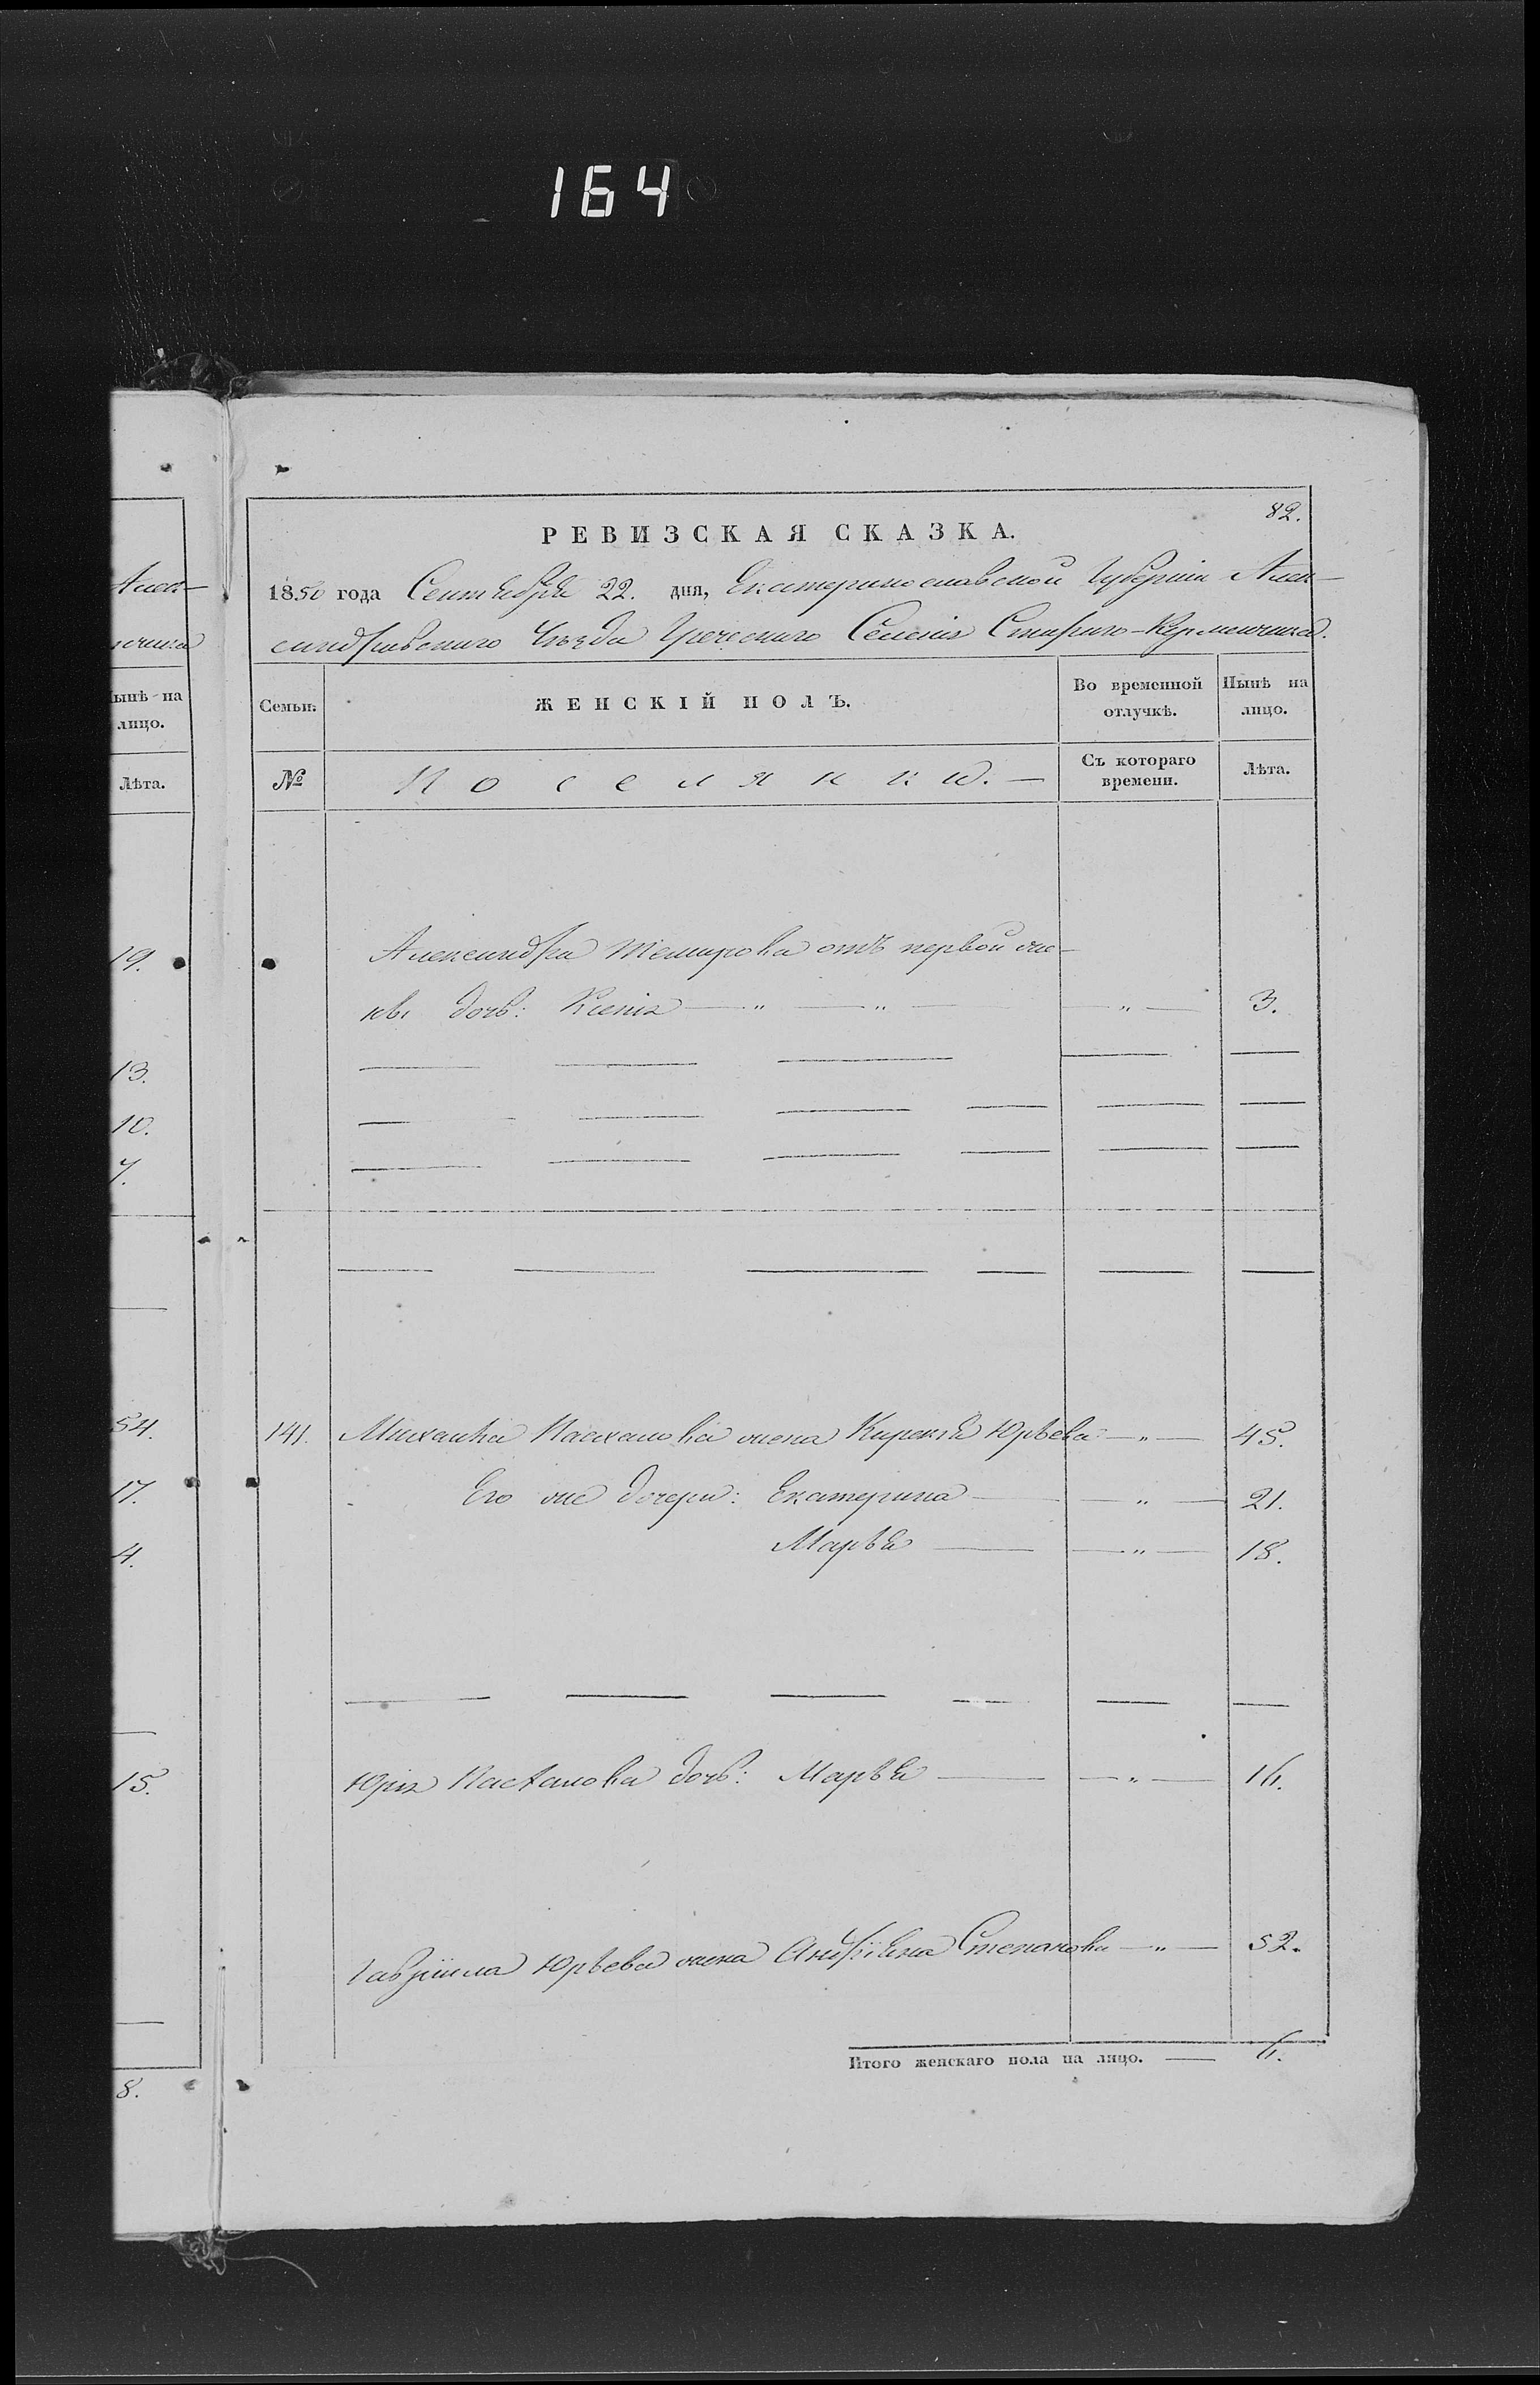 164
82.
РЕВИЗСКАЯ СКАЗКА.
1850 года Сентября 22. дня, Екатеринославской Губерніи Алек-
сандровскаго Уѣзда Греческаго Селенія Стараго-Керменчика.
Семьи. ЖЕНСКІЙ ПОЛЪ. Во временной отлучкѣ. Нынѣ на лицо.
№ Поселянки. — Съ котораго времени. Лѣта.
Александра Темирова отъ первой же-
ны дочь: Ксенія — " — " — — " — 3.
141. Михаила Пасхалова жена Кирекія Юрьева — " — 45.
Его же дочери: Екатерина — — " — 21.
Марья — — " — 18.
Юрія Пасхалова дочь: Марья — — " — 16.
Гавріила Юрьева жена Андріяна Степанова — " — 52.
Итого женскаго пола на лицо. — 6.
Алек-
нчика
Нынѣ на
лицо.
Лѣта.
19.
13.
10.
7.
54.
17.
4.
15.
8.